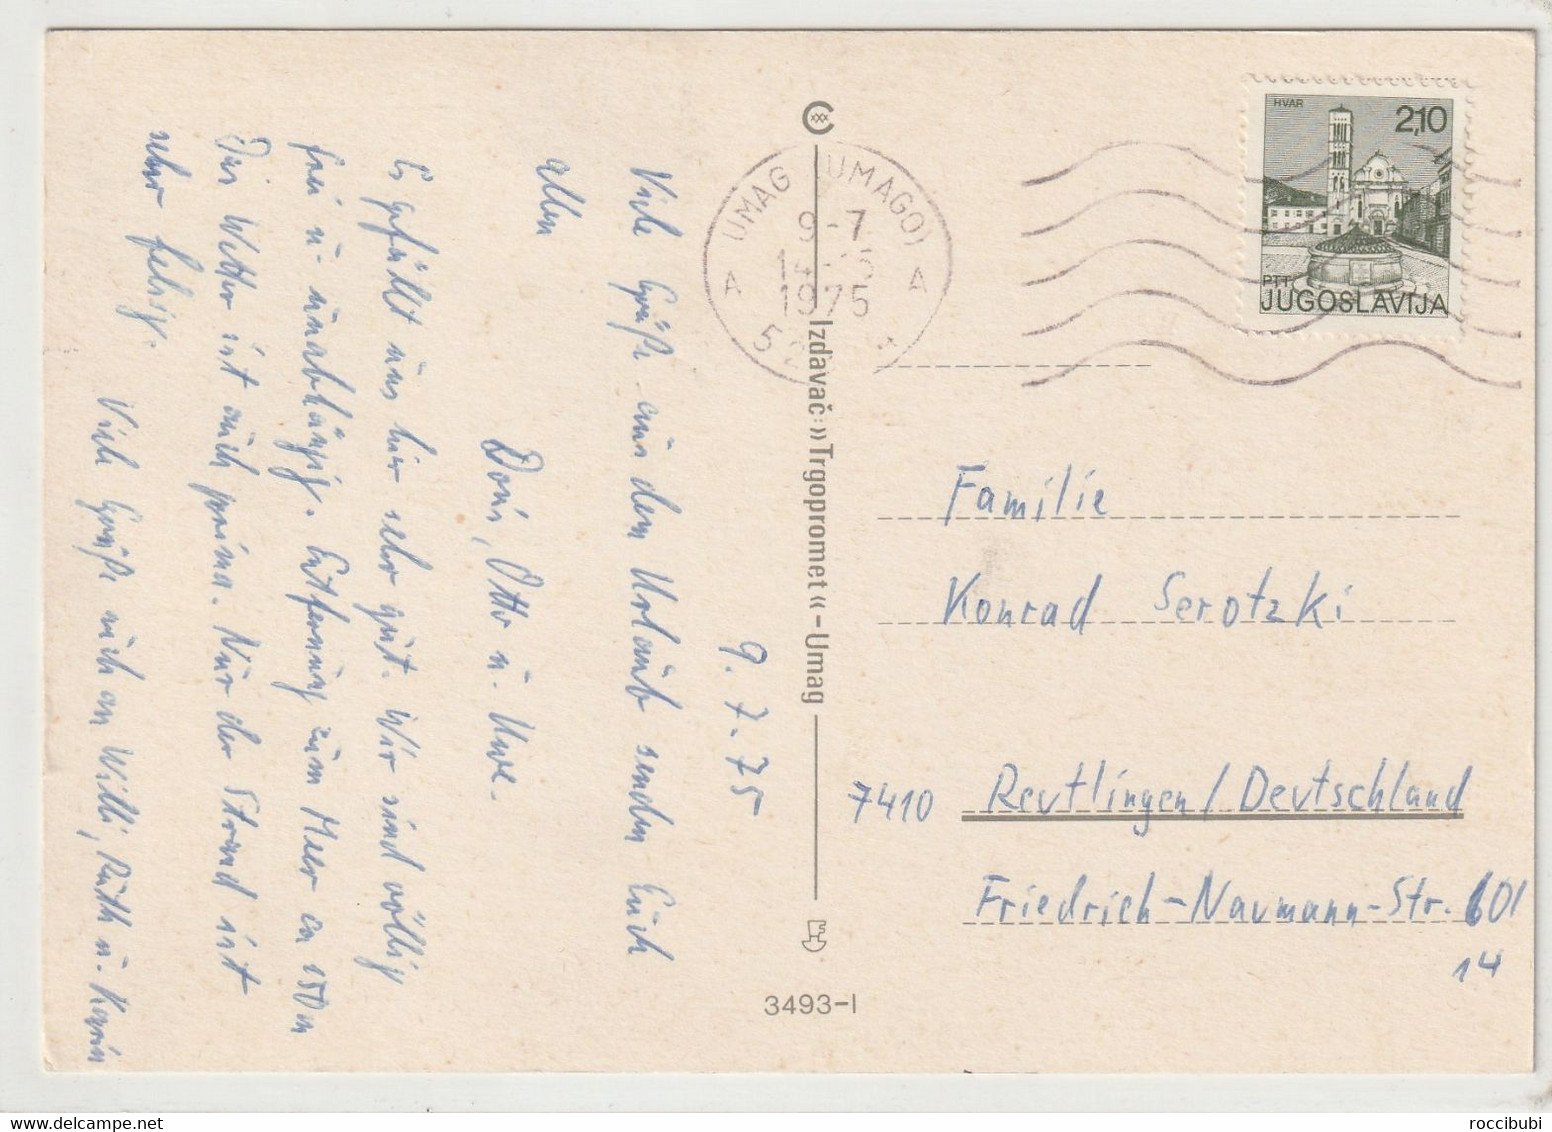 9.7.75
Viele Grüße aus dem Urlaub senden Euch
allen
Doris, Otto u. Uwe.
Es gefällt uns hier sehr gut. Wir sind völlig
frei u. unabhängig. Entfernung zum Meer ca 150 m
Das Wetter ist auch prima. Nur der Strand ist
sehr felsig.
Viele Grüße auch an Willi, Ruth u. Karin
Izdavač: »Trgopromet« - Umag
3493-I
UMAG (UMAGO)
9-7
1975
A A
HVAR
2,10
PTT
JUGOSLAVIJA
Familie
Konrad Serotzki
7410 Reutlingen/Deutschland
Friedrich-Naumann-Str. 601
14
www.delcampe.net
roccibubi